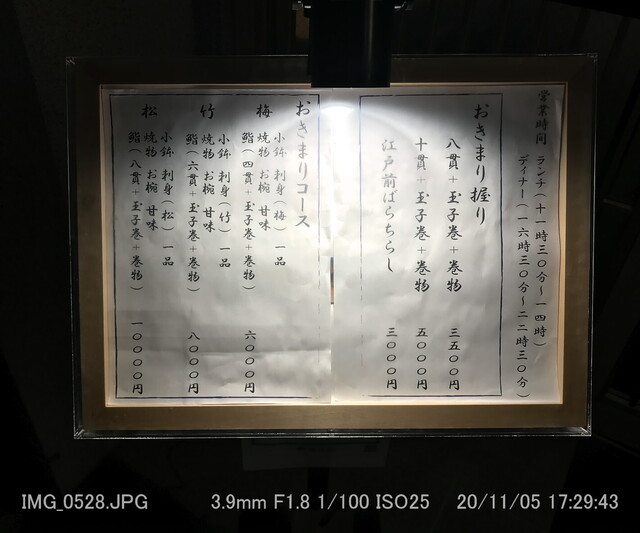 営業時間 ランチ(十一時三〇分〜一四時)
ディナー(一六時三〇分〜二二時三〇分)
おきまり握り
八貫+玉子巻+巻物 三五〇〇円
十貫+玉子巻+巻物 五〇〇〇円
江戸前ばらちらし 三〇〇〇円
おきまりコース
梅 小鉢 刺身(梅) 一品
焼物 お椀 甘味
鮨(四貫+玉子巻+巻物) 六〇〇〇円
竹 小鉢 刺身(竹) 一品
焼物 お椀 甘味
鮨(六貫+玉子巻+巻物) 八〇〇〇円
松 小鉢 刺身(松) 一品
焼物 お椀 甘味
鮨(八貫+玉子巻+巻物) 一〇〇〇〇円
IMG_0528.JPG 3.9mm F1.8 1/100 ISO25 20/11/05 17:29:43